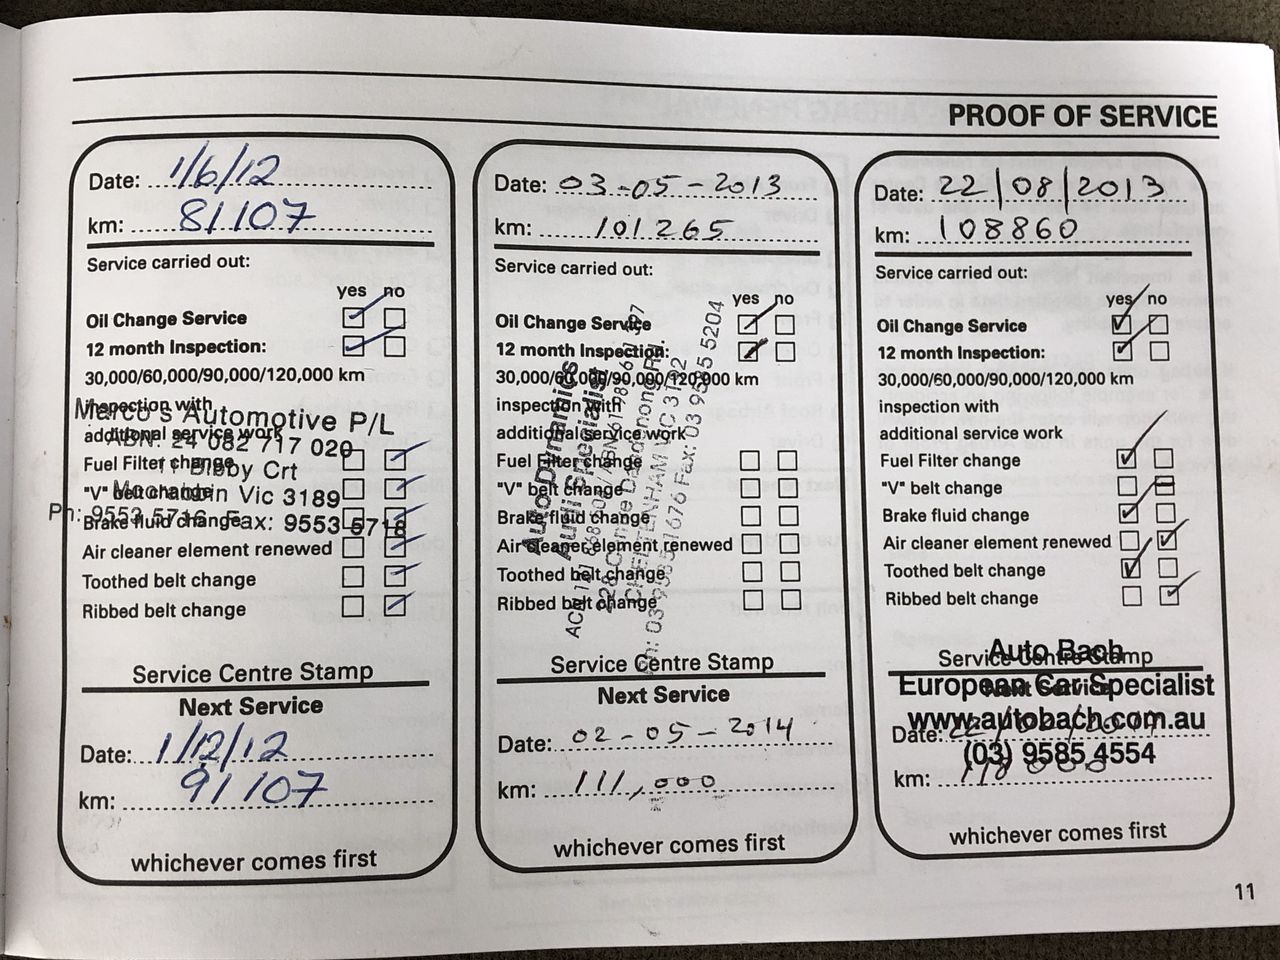 PROOF OF SERVICE
Date: 1/6/12
km: 81107
Service carried out:
yes no
Oil Change Service
12 month Inspection:
30,000/60,000/90,000/120,000 km
inspection with
additional service work
Marco's Automotive P/L
ABN: 24 082 717 020
Fuel Filter change
Bigby Crt
"V" belt change
Moorabbin Vic 3189
Ph: 9553 5716 Fax: 9553 5718
Brake fluid change
Air cleaner element renewed
Toothed belt change
Ribbed belt change
Service Centre Stamp
Next Service
Date: 1/12/12
km: 91107
whichever comes first
Date: 03-05-2013
km: 101265
Service carried out:
yes no
Oil Change Service
12 month Inspection:
30,000/60,000/90,000/120,000 km
inspection with
additional service work
Fuel Filter change
"V" belt change
Brake fluid change
Air cleaner element renewed
Toothed belt change
Ribbed belt change
Auto Dynamics
Audi Specialist
CHELTENHAM VIC 3192
Ph: 03 9585 1676 Fax: 03 9585 5204
Service Centre Stamp
Next Service
Date: 02-05-2014
km: 111,000
whichever comes first
Date: 22/08/2013
km: 108860
Service carried out:
yes no
Oil Change Service
12 month Inspection:
30,000/60,000/90,000/120,000 km
inspection with
additional service work
Fuel Filter change
"V" belt change
Brake fluid change
Air cleaner element renewed
Toothed belt change
Ribbed belt change
Auto Bach
Service Centre Stamp
European Car Specialist
Next Service
www.autobach.com.au
Date: 22/02/2014
(03) 9585 4554
km: 118000
whichever comes first
11